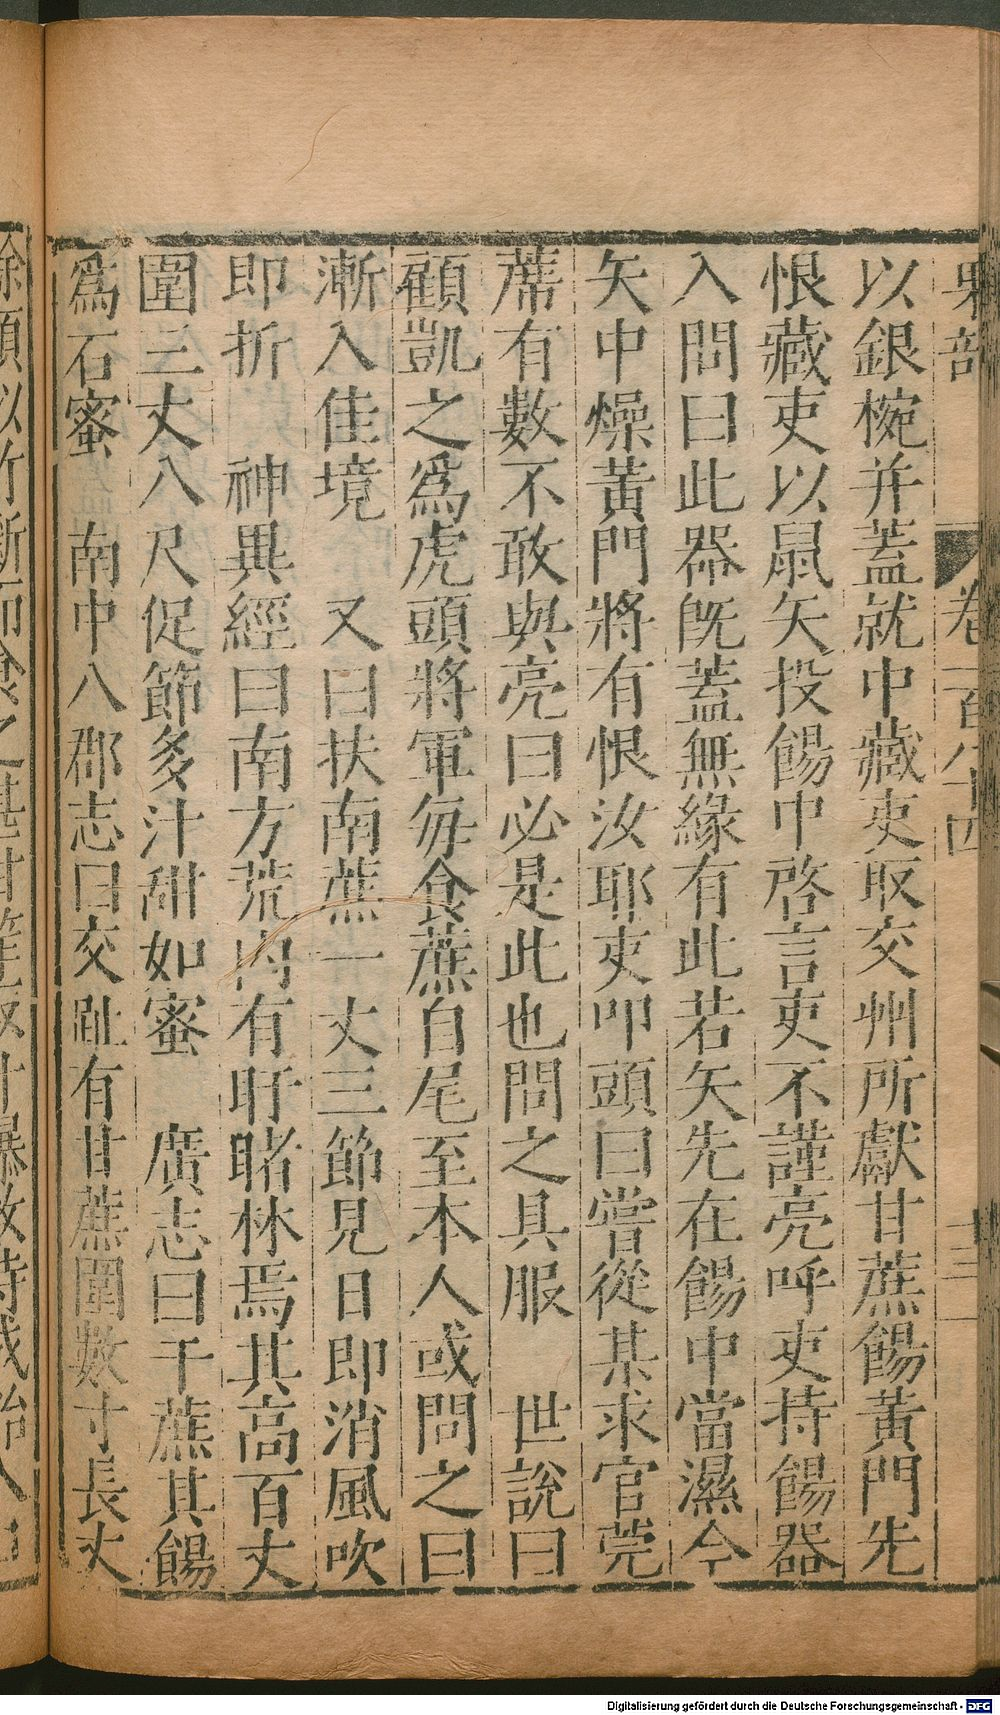 果部 卷一百八十四 十三
以銀椀并蓋就中藏吏取交州所獻甘蔗餳黃門先
恨藏吏以鼠矢投餳中啓言吏不謹亮呼吏持餳器
入問曰此器旣蓋無緣有此若矢先在餳中當濕今
矢中燥黃門將有恨汝耶吏叩頭曰嘗從某求官莞
蓆有數不敢與亮曰必是此也問之具服　世說曰
顧凱之為虎頭將軍每食蔗自尾至本人或問之曰
漸入佳境　又曰扶南蔗一丈三節見日即消風吹
即折　神異經曰南方荒内有盱睹林焉其高百丈
圍三丈八尺促節多汁甜如蜜　廣志曰干蔗其餳
為石蜜　南中八郡志曰交趾有甘蔗圍數寸長丈
餘頗似竹斷而食之甚甘
Digitalisierung gefördert durch die Deutsche Forschungsgemeinschaft - DFG